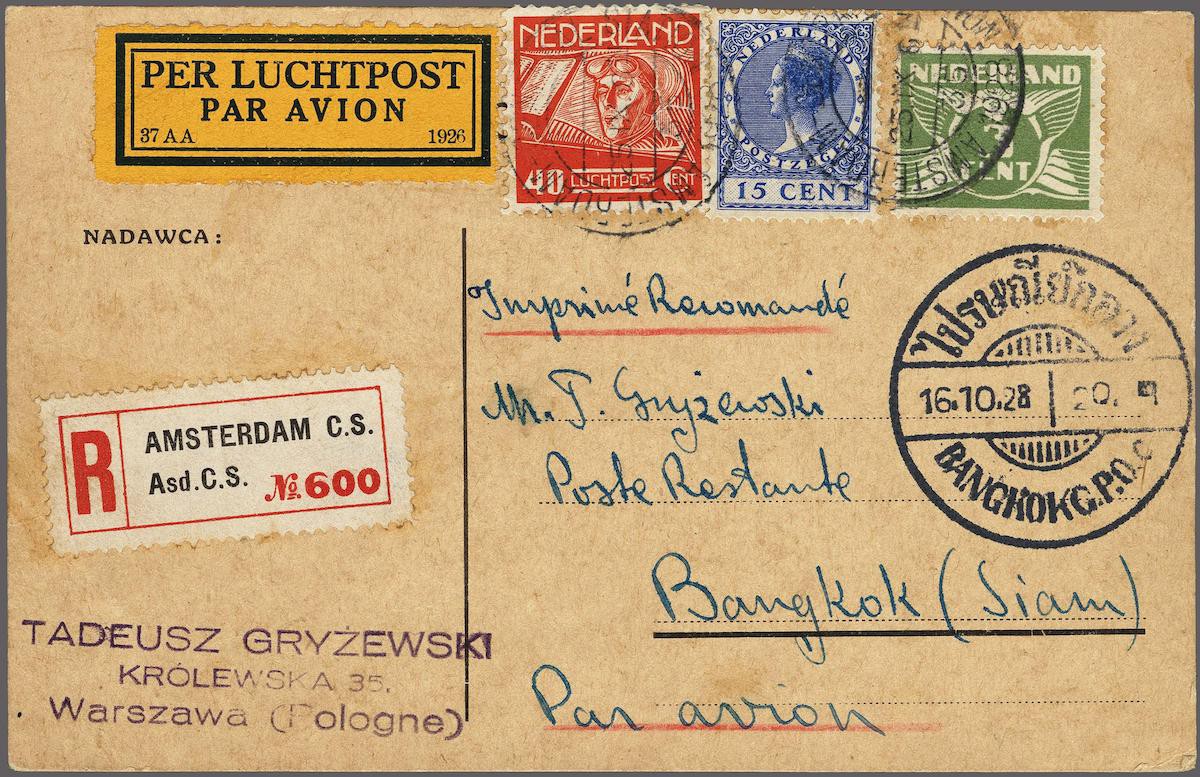 PER LUCHTPOST
PAR AVION
37 A A 1926
NEDERLAND
40 LUCHTPOST CENT
NEDERLAND
POSTZEGEL
15 CENT
NEDERLAND
CENT
AMSTERDAM
NADAWCA:
Imprimé Recomandé
Mr. T. Gryżewski
Poste Restante
Bangkok (Siam)
Par avion
ไปรษณีย์กลาง
16.10.28 20.
BANGKOK G.P.O.
R
AMSTERDAM C.S.
Asd.C.S. № 600
TADEUSZ GRYŻEWSKI
KRÓLEWSKA 35.
Warszawa (Pologne)